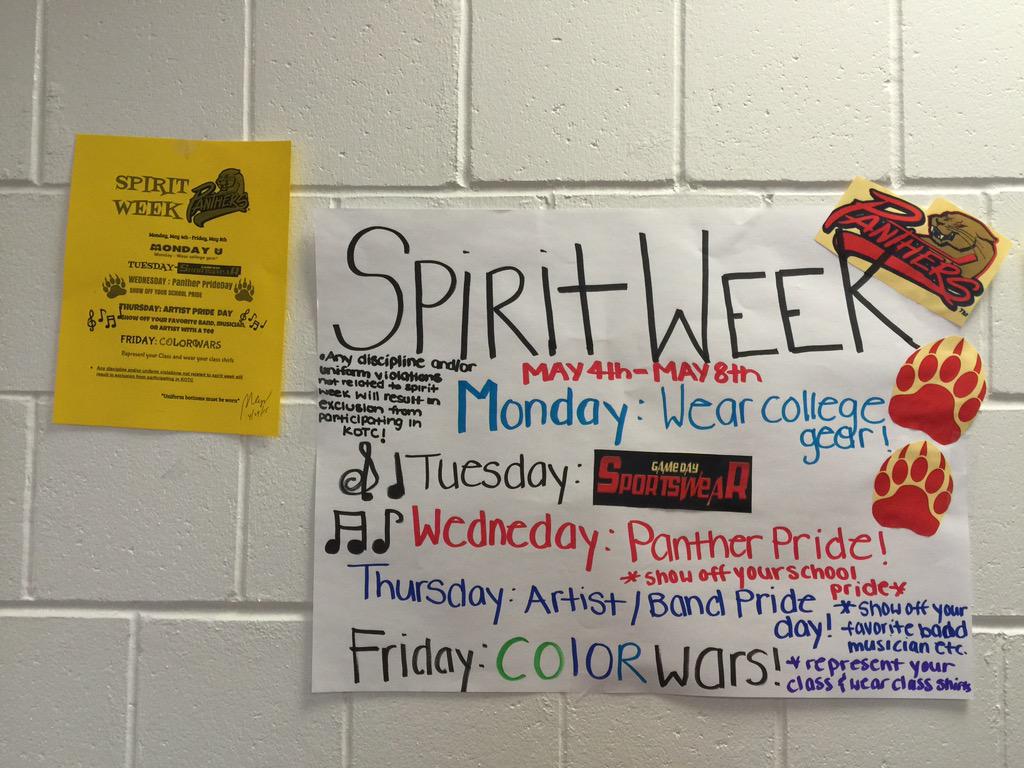 SPIRIT
WEEK
PANTHERS
Monday, May 4th - Friday, May 8th
MONDAY U
Monday - Wear college gear*
TUESDAY- GAME DAY SPORTSWEAR
WEDNESDAY: Panther PrideDay
SHOW OFF YOUR SCHOOL PRIDE
THURSDAY: ARTIST PRIDE DAY
SHOW OFF YOUR FAVORITE BAND, MUSICIAN,
OR ARTIST WITH A TEE
FRIDAY: COLORWARS
Represent your Class and wear your class shirts
Any discipline and/or uniform violations not related to spirit week will
result in exclusion from participating in KOTC.
*Uniform bottoms must be worn*
SPIRIT WEEK
PANTHERS
TM
MAY 4th - MAY 8th
•Any discipline and/or
uniform violations
not related to spirit
week will result in
exclusion from
participating in
KOTC!
Monday: Wear college
gear!
Tuesday: GAME DAY SPORTSWEAR
Wedneday: Panther Pride!
*show off your school
pride*
Thursday: Artist/Band Pride
day!
*show off your
favorite band
musician etc.
Friday: COlOR wars!
*represent your
class & wear class shirts